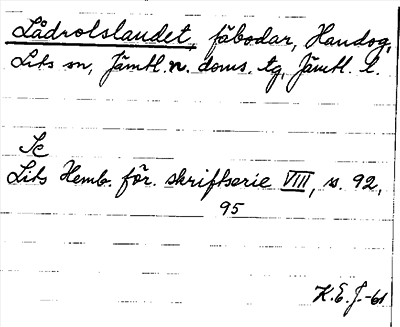 Lådrolslandet, fäbodar, Handog,
Lits sn, Jämtl. n. doms. tg, Jämtl. l.
Se
Lits Hemb. för. skriftserie VIII, s. 92,
95
K.E.J.-61